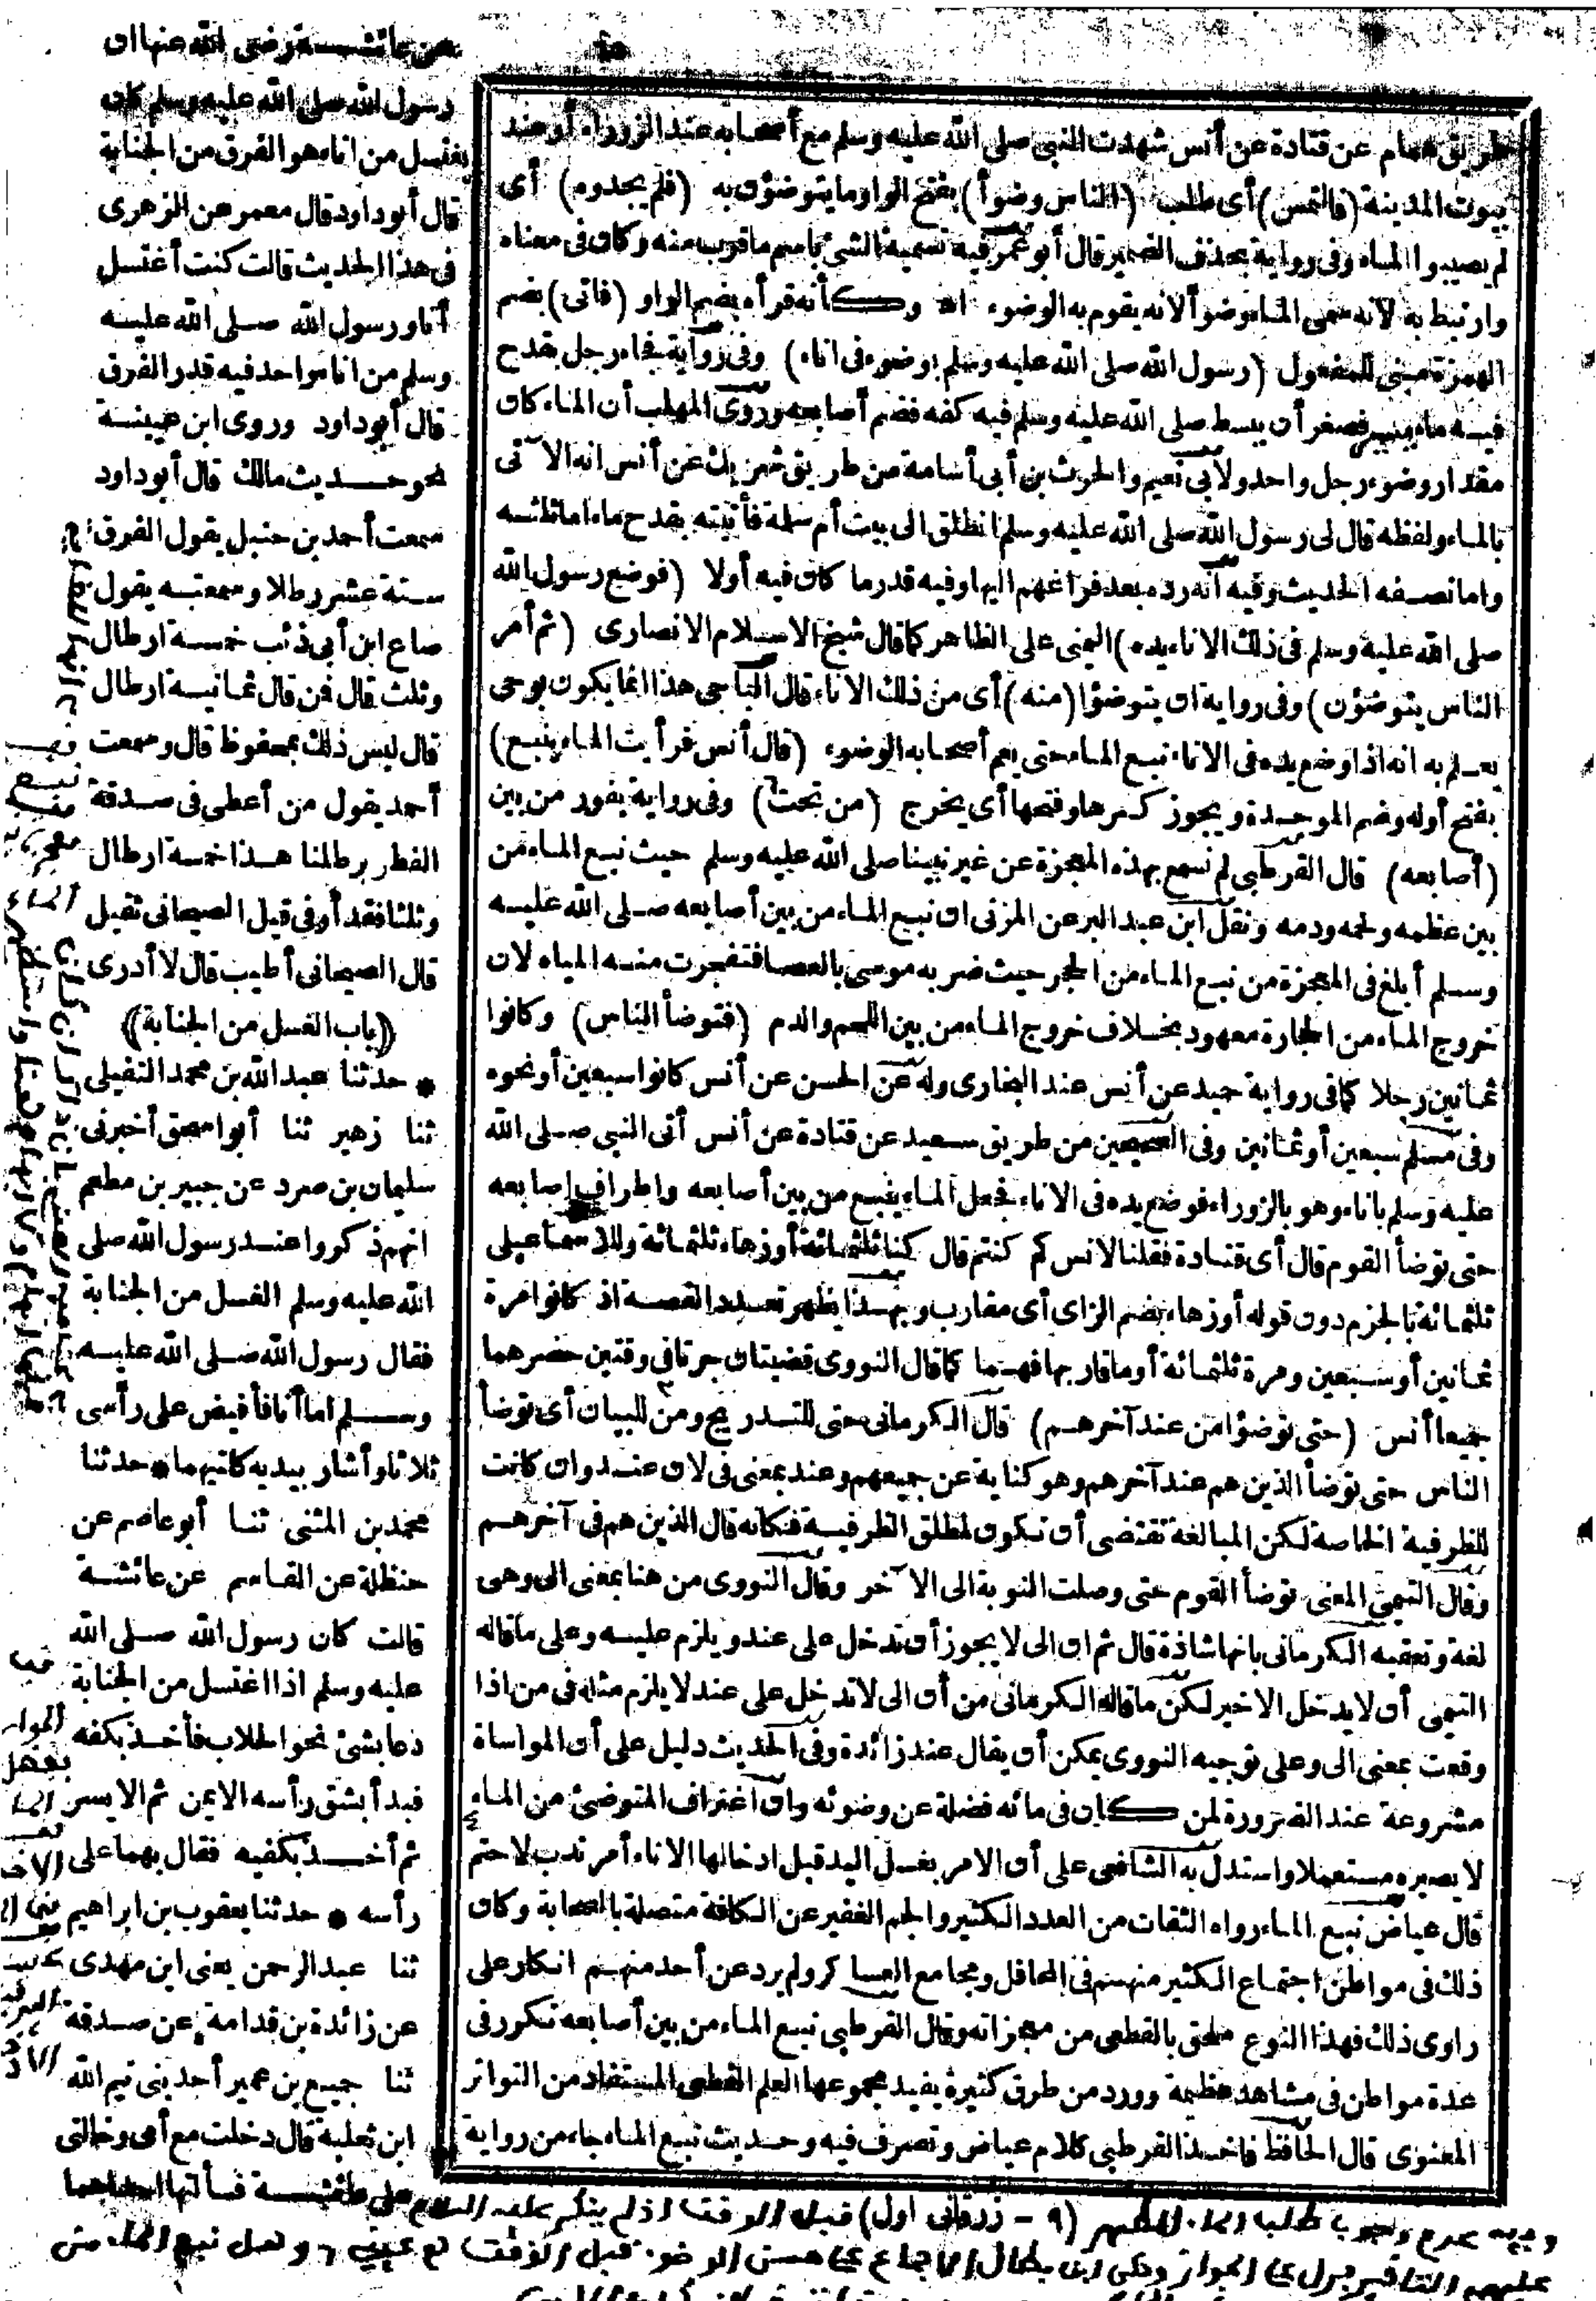 طريق همام عن قتادة عن أنس شهدت النبي صلى الله عليه وسلم مع أصحابه عند الزوراء أو عند
بيوت المدينة (فالتمس) أى طلب (الناس وضوأ) بفتح الواو ما يتوضؤن به (فلم يجدوه) أى
لم يصيبوا الماء وفى رواية بحذف الضمير قال أبو عمر فيه تسمية الشئ باسم ما قرب منه وكان فى معناه
وارتبط به لانه سمى الماء وضوأ لانه يقوم به الوضوء اه وكأنه قرأه بضم الواو (فاتى) بضم
الهمزة مبنى للمفعول (رسول الله صلى الله عليه وسلم بوضوء فى اناء) وفى رواية فجاء رجل بقدح
فيه ماء يسير فصغر أن يبسط صلى الله عليه وسلم فيه كفه فضم أصابعه وروى المهلب أن الماء كان
مقدار وضوء رجل واحد ولابى نعيم والحرث بن أبى أسامة من طريق شريك عن أنس انه الآتى
بالماء ولفظه قال لى رسول الله صلى الله عليه وسلم انطلق الى بيت أم سلمة فأتيته بقدح ماء اما ثلثه
واما نصفه الحديث وفيه أنه رده بعد فراغهم اليها وفيه قدر ما كان فيه أولا (فوضع رسول الله
صلى الله عليه وسلم فى ذلك الاناء يده) اليمنى على الظاهر كما قال شيخ الاسلام الانصارى (ثم أمر
الناس يتوضؤن) وفى رواية ان يتوضؤا (منه) أى من ذلك الاناء قال الباجى هذا انما يكون بوحى
يعلم به انه اذا وضع يده فى الاناء نبع الماء حتى يعم أصحابه الوضوء (قال أنس فرأيت الماء ينبع)
بفتح أوله وضم الموحدة ويجوز كسرها وفتحها أى يخرج (من تحت) وفى رواية يفور من بين
(أصابعه) قال القرطبى لم نسمع بهذه المعجزة عن غير نبينا صلى الله عليه وسلم حيث نبع الماء من
بين عظمه ولحمه ودمه ونقل ابن عبد البر عن المزنى ان نبع الماء من بين أصابعه صلى الله عليه
وسلم أبلغ فى المعجزة من نبع الماء من الحجر حيث ضربه موسى بالعصا فتفجرت منه المياه لان
خروج الماء من الحجارة معهود بخلاف خروج الماء من بين اللحم والدم (فتوضأ الناس) وكانوا
ثمانين رجلا كما فى رواية حميد عن أنس عند البخارى وله عن الحسن عن أنس كانوا سبعين أو نحوه
وفى مسلم سبعين أو ثمانين وفى الصحيحين من طريق سعيد عن قتادة عن أنس أتى النبي صلى الله
عليه وسلم باناء وهو بالزوراء فوضع يده فى الاناء فجعل الماء ينبع من بين أصابعه واطراف اصابعه
حتى توضأ القوم قال أى قتادة فقلنا لانس كم كنتم قال كنا ثلثمائة أو زهاء ثلثمائة وللاسماعيلى
ثلثمائة بالجزم دون قوله أو زهاء بضم الزاى أى مقارب وبهذا يظهر تعدد القصة اذ كانوا مرة
ثمانين أو سبعين ومرة ثلثمائة أو ما قاربها فهما كما قال النووى قضيتان جرتا فى وقتين حضرهما
جميعا أنس (حتى توضؤا من عند آخرهم) قال الكرمانى حتى للتدريج ومن للبيان أى توضأ
الناس حتى توضأ الذين هم عند آخرهم وهو كناية عن جميعهم وعند بمعنى فى لان عند وان كانت
للظرفية الخاصة لكن المبالغة تقتضى أن تكون لمطلق الظرفية فكأنه قال الذين هم فى آخرهم
وقال التيمى المعنى توضأ القوم حتى وصلت النوبة الى الآخر وقال النووى من هنا بمعنى الى وهى
لغة وتعقبه الكرمانى بانها شاذة قال ثم ان الى لا يجوز أن تدخل على عند ويلزم عليه وعلى ما قاله
التيمى أن لا يدخل الاخير لكن ما قاله الكرمانى من أن الى لا تدخل على عند لا يلزم مثله فى من اذا
وقعت بمعنى الى وعلى توجيه النووى يمكن أن يقال عند زائدة وفى الحديث دليل على أن المواساة
مشروعة عند الضرورة لمن كان فى مائه فضلة عن وضوئه وان اغتراف المتوضئ من الماء
لا يصيره مستعملا واستدل به الشافعى على أن الامر بغسل اليد قبل ادخالها الاناء أمر ندب لا حتم
قال عياض نبع الماء رواه الثقات من العدد الكثير والجم الغفير عن الكافة متصلة بالصحابة وكان
ذلك فى مواطن اجتماع الكثير منهم فى المحافل ومجامع العساكر ولم يرد عن أحد منهم انكار على
راوى ذلك فهذا النوع ملحق بالقطعى من معجزاته وقال القرطبى نبع الماء من بين أصابعه تكرر فى
عدة مواطن فى مشاهد عظيمة وورد من طرق كثيرة يفيد مجموعها العلم القطعى المستفاد من التواتر
المعنوى قال الحافظ فاخذ القرطبى كلام عياض وتصرف فيه وحديث نبع الماء جاء من رواية
(٩ - زرقانى اول)
عن عائشة رضى الله عنها ان
رسول الله صلى الله عليه وسلم كان
يغتسل من اناء هو الفرق من الجنابة
قال أبو داود قال معمر عن الزهرى
فى هذا الحديث قالت كنت أغتسل
أنا ورسول الله صلى الله عليه
وسلم من اناء واحد فيه قدر الفرق
قال أبو داود وروى ابن عيينة
نحو حديث مالك قال أبو داود
سمعت أحمد بن حنبل يقول الفرق
ستة عشر رطلا وسمعته يقول
صاع ابن أبى ذئب خمسة ارطال
وثلث قال فمن قال ثمانية ارطال
قال ليس ذلك بمحفوظ قال وسمعت
أحمد يقول من أعطى فى صدقة
الفطر برطلنا هذا خمسة ارطال
وثلثا فقد أوفى قيل الصيحانى ثقيل
قال الصيحانى أطيب قال لا أدرى
((باب الغسل من الجنابة))
* حدثنا عبد الله بن محمد النفيلى
ثنا زهير ثنا أبو اسحق أخبرنى
سليمان بن صرد عن جبير بن مطعم
انهم ذكروا عند رسول الله صلى
الله عليه وسلم الغسل من الجنابة
فقال رسول الله صلى الله عليه
وسلم اما أنا فأفيض على رأسى
ثلاثا وأشار بيديه كلتيهما * حدثنا
محمد بن المثنى ثنا أبو عاصم عن
حنظلة عن القاسم عن عائشة
قالت كان رسول الله صلى الله
عليه وسلم اذا اغتسل من الجنابة
دعا بشئ نحو الحلاب فأخذ بكفه
فبدأ بشق رأسه الايمن ثم الايسر
ثم أخذ بكفيه فقال بهما على
رأسه * حدثنا يعقوب بن ابراهيم
ثنا عبد الرحمن يعنى ابن مهدى
عن زائدة بن قدامة عن صدقة
ثنا جميع بن عمير أحد بنى تيم الله
ابن ثعلبة قال دخلت مع أمى وخالتى
على عائشة فسألتها احداهما